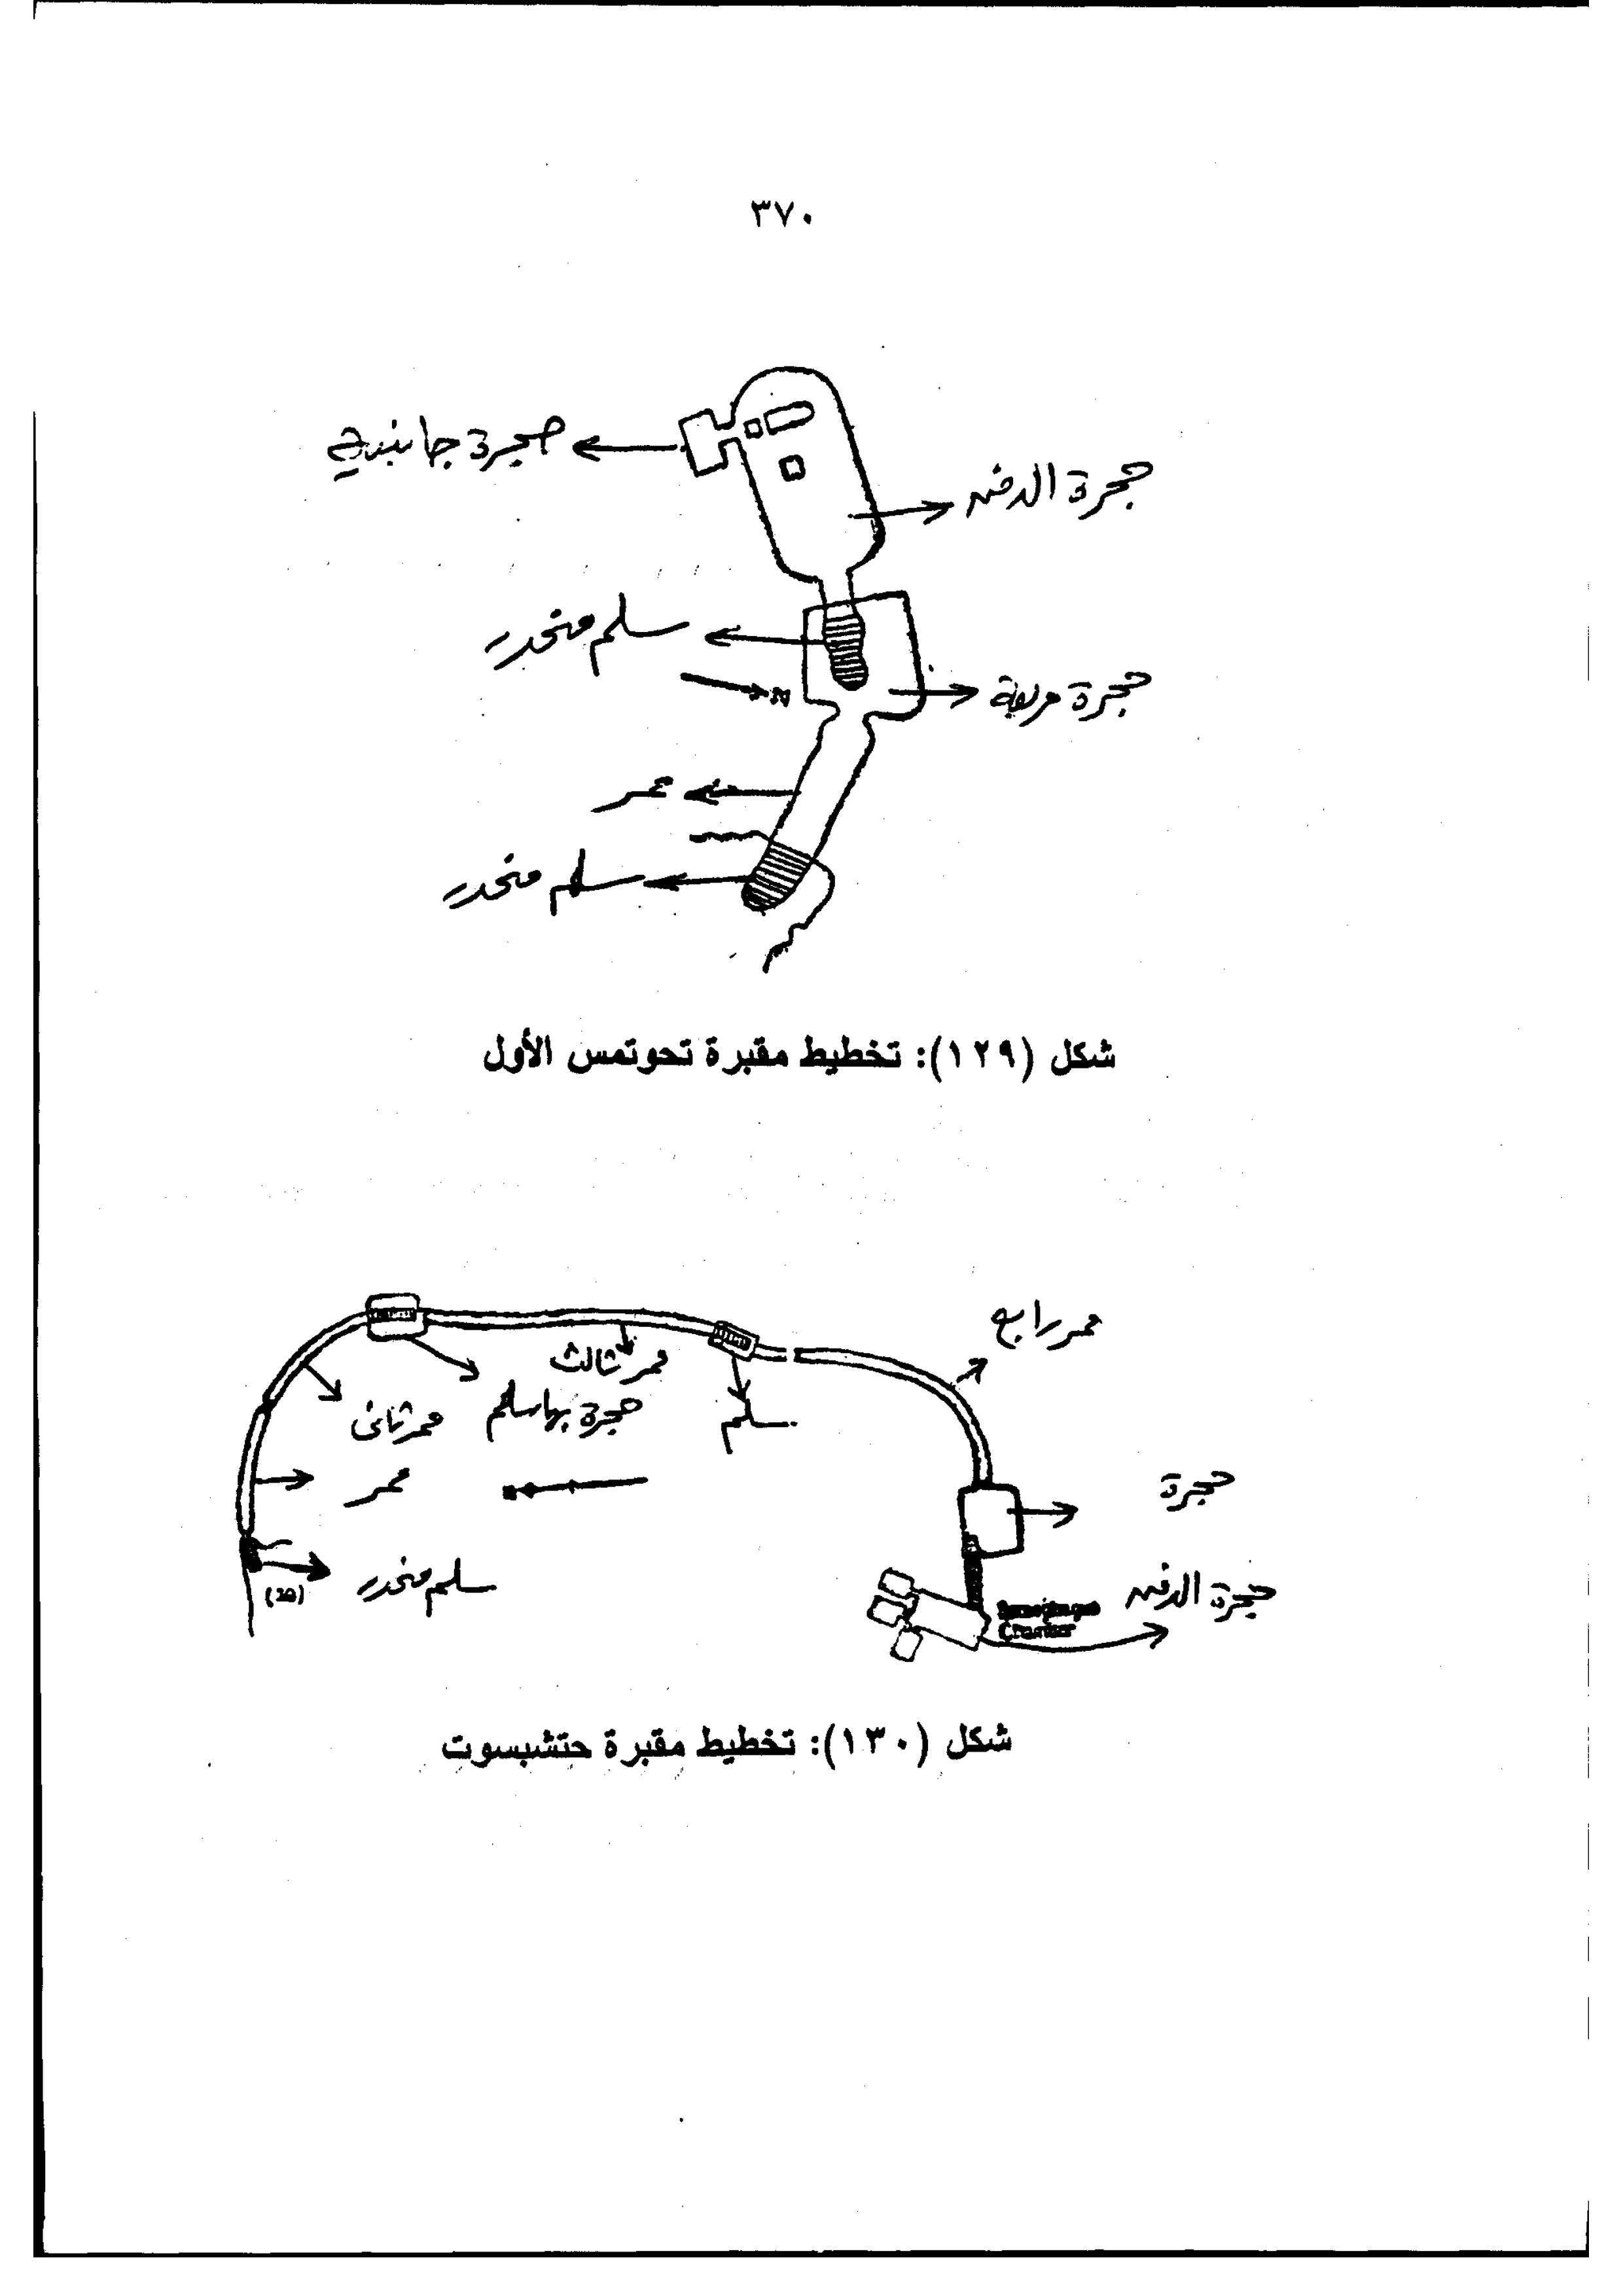 ٣٧٠
حجرة جانبية
حجرة الدفن
سلم منحدر
N
حجرة مربعة
ممر
سلم منحدر
شكل (١٢٩): تخطيط مقبرة تحوتمس الأول
ممر رابع
ممر ثالث
حجرة بها سلم
ممر ثانى
سلم
ممر
حجرة
سلم منحدر
(20)
حجرة الدفن
Sarcophagus
Chamber
شكل (١٣٠): تخطيط مقبرة حتشبسوت